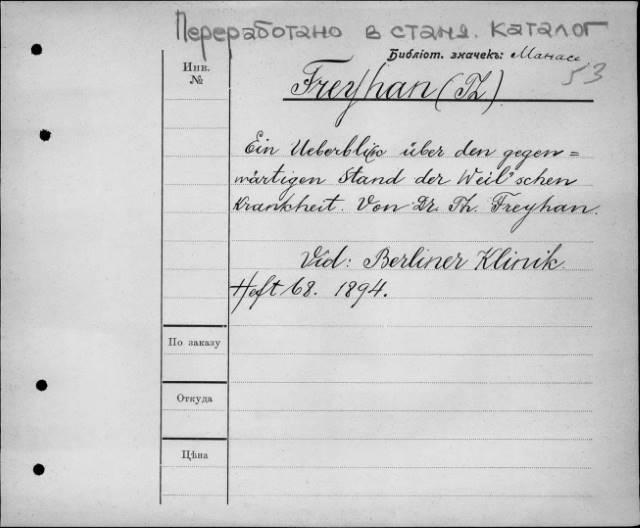 Переработано в станд. каталог
Библіот. значекъ: Манасс
53
Инв.
№
Freyhan (Th.)
Ein Ueberblick über den gegen=
wärtigen Stand der Weil'schen
Krankheit. Von Dr. Th. Freyhan.
Vid: Berliner Klinik.
Heft 68. 1894.
По заказу
Откуда
Цѣна